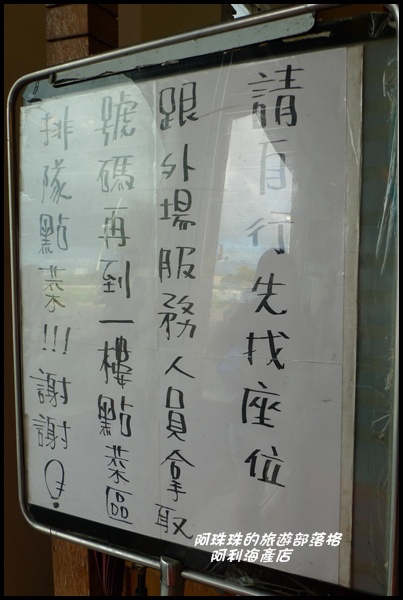 請自行先找座位
跟外場服務人員拿取
號碼再到一樓點菜區
排隊點菜!!!謝謝
阿珠珠的旅遊部落格
阿利海產店